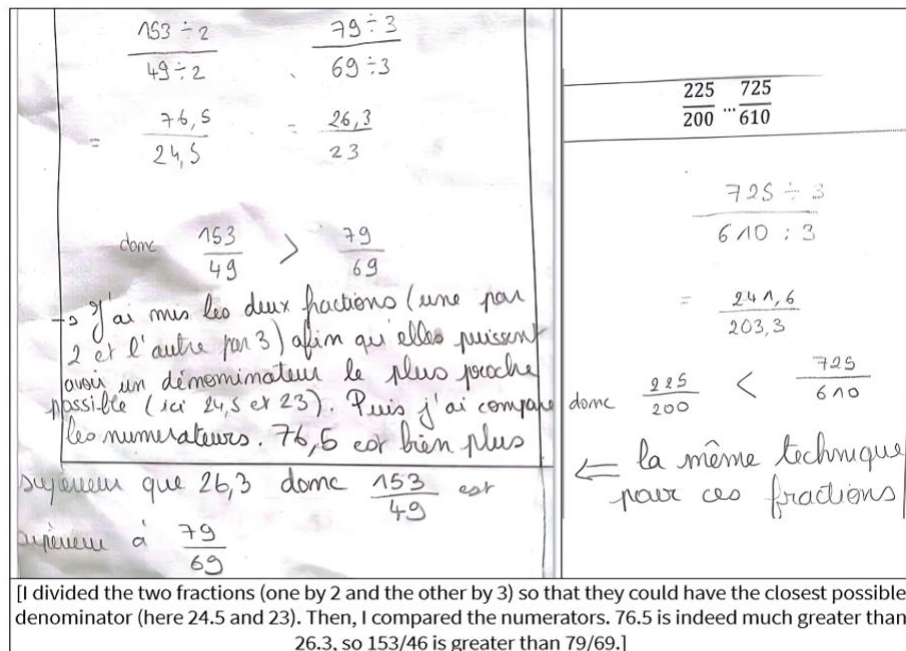 153 ÷ 2 79 ÷ 3
49 ÷ 2 69 ÷ 3
= 76,5 = 26,3
24,5 23
donc 153 > 79
49 69
→ J'ai mis les deux fractions (une par
2 et l'autre par 3) afin qu'elles puissent
avoir un dénominateur le plus proche
possible (ici 24,5 et 23). Puis j'ai compare
les numerateurs. 76,5 est bien plus
superieur que 26,3 donc 153 est
49
supèrieur à 79
69
225 ... 725
200 610
725 ÷ 3
610 : 3
= 241,6
203,3
donc 225 < 725
200 610
⇐ la même technique
pour ces fractions
[I divided the two fractions (one by 2 and the other by 3) so that they could have the closest possible
denominator (here 24.5 and 23). Then, I compared the numerators. 76.5 is indeed much greater than
26.3, so 153/46 is greater than 79/69.]